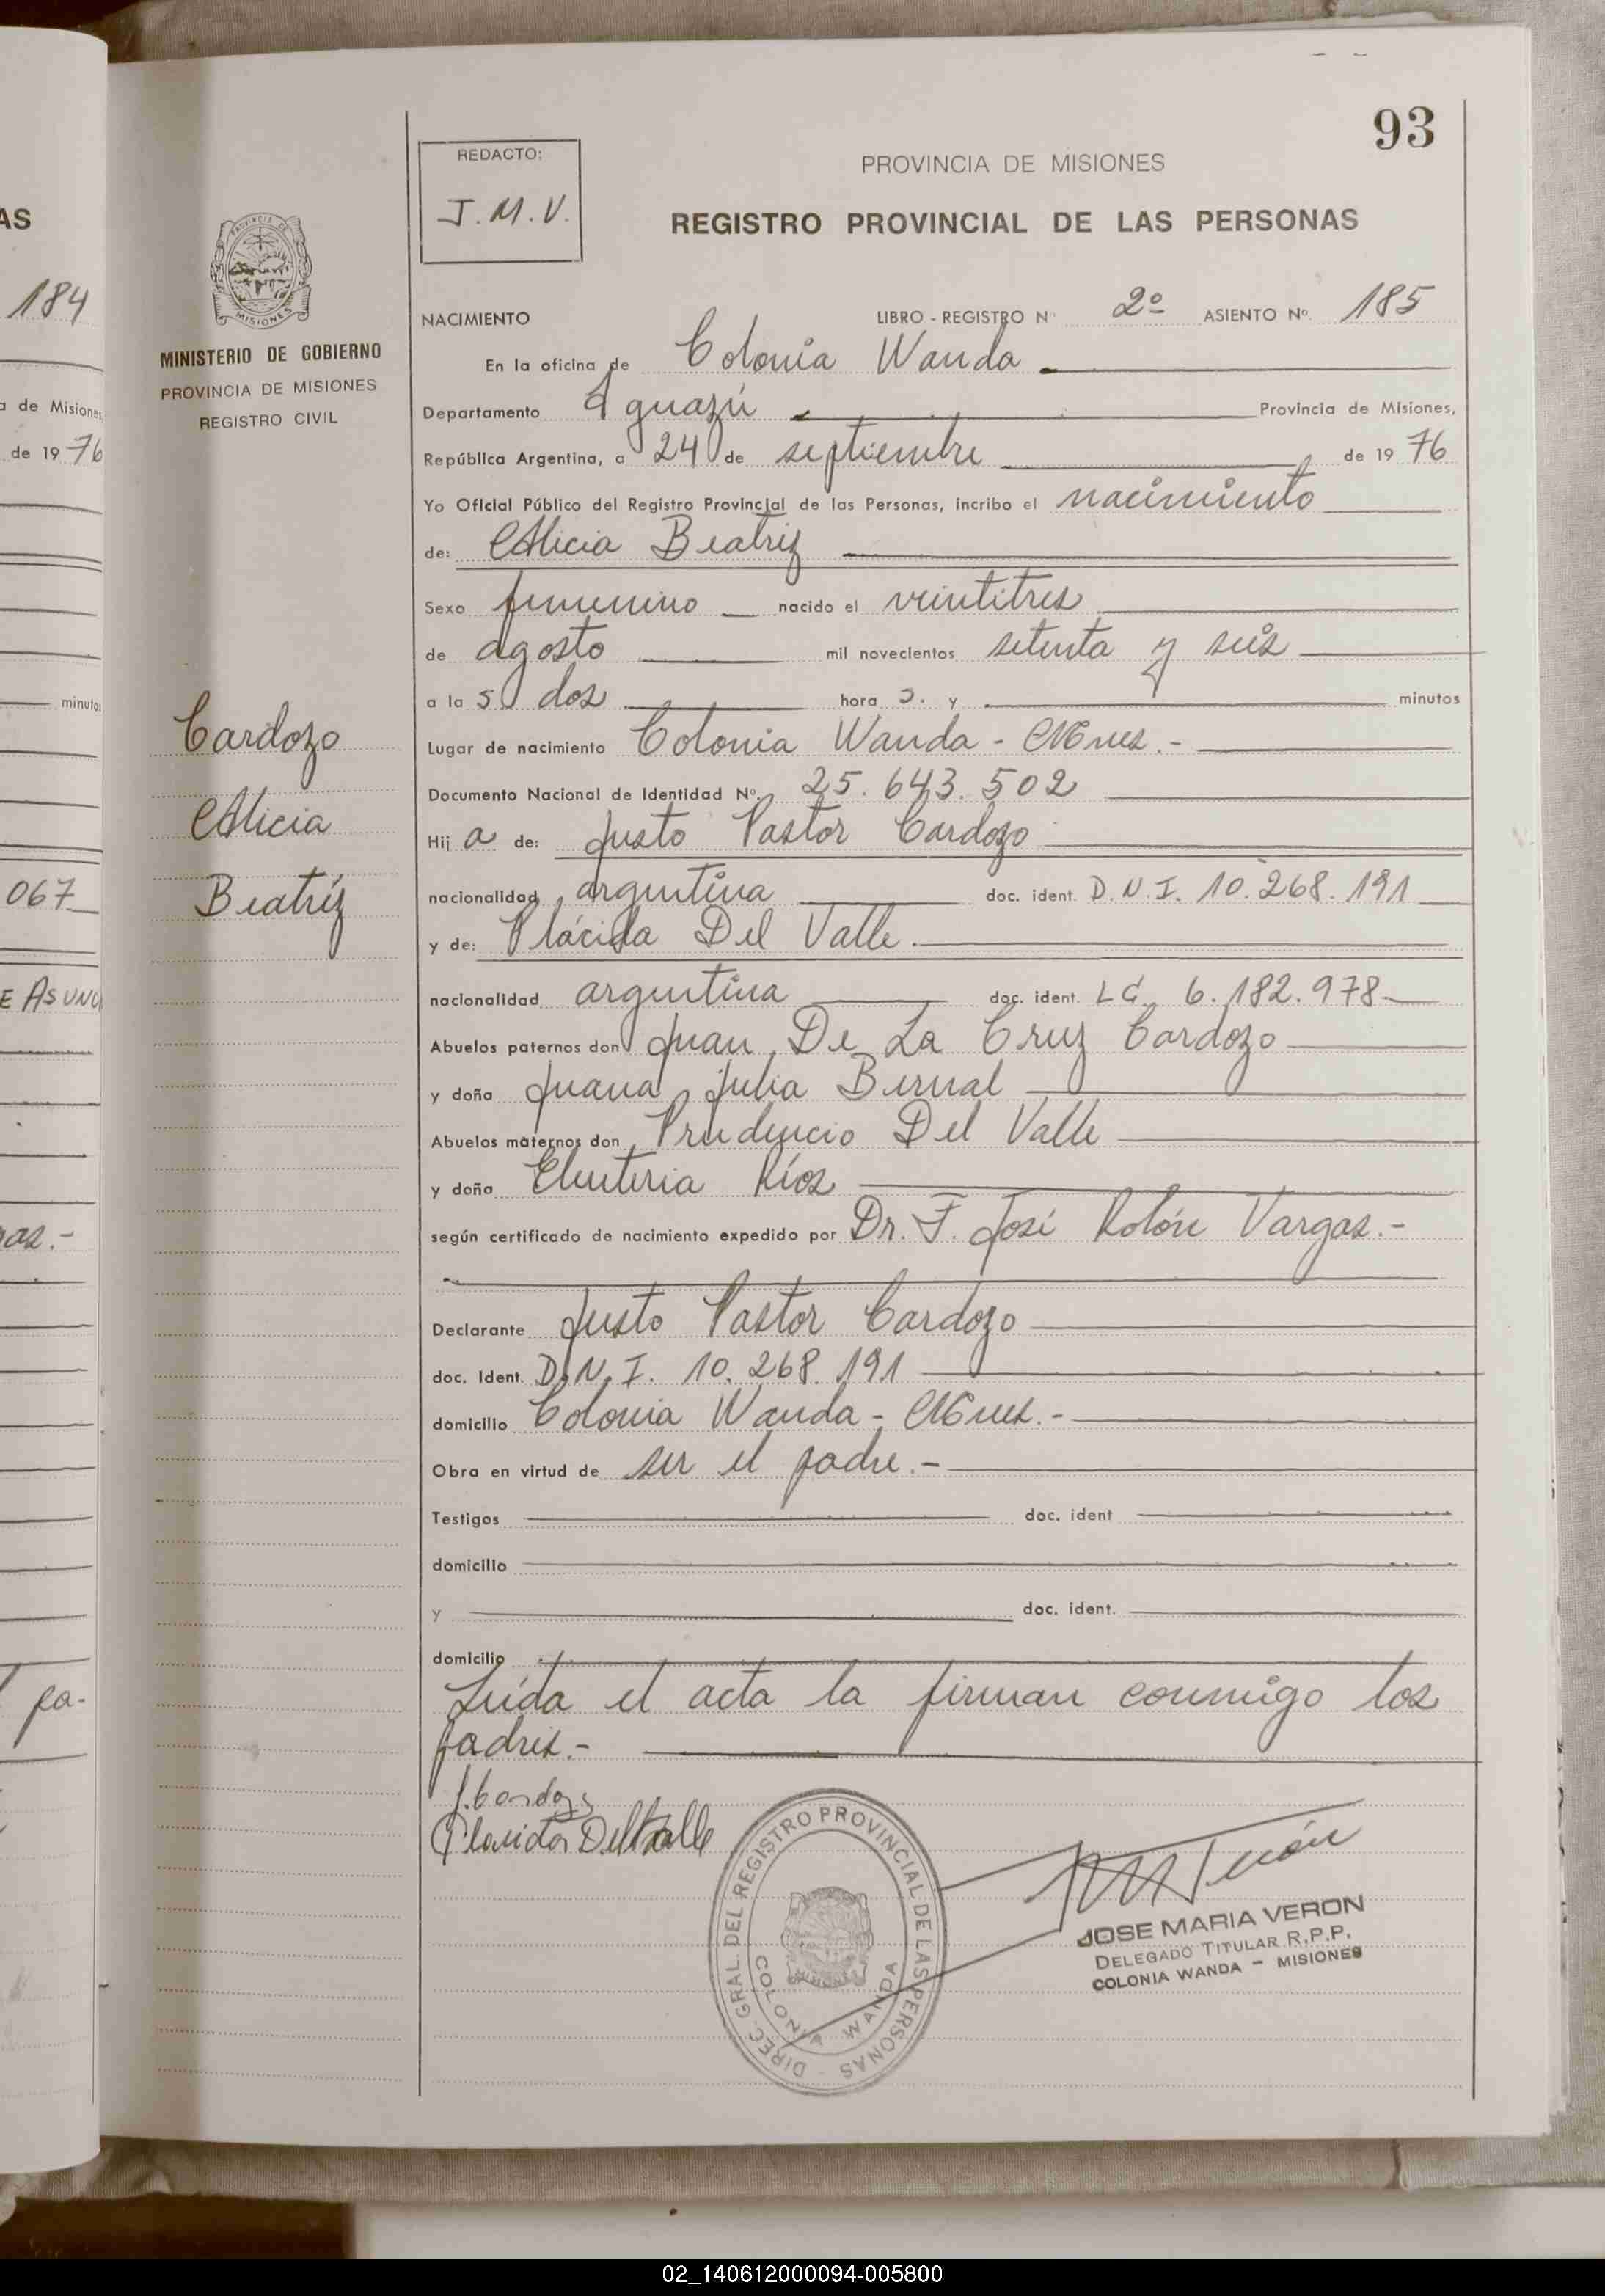 AS
184
a de Misiones
de 1976
minutos
067
E ASUNC
pa-
93
REDACTO:
J.M.V.
PROVINCIA DE MISIONES
REGISTRO PROVINCIAL DE LAS PERSONAS
PROVINCIA DE
MISIONES
MINISTERIO DE GOBIERNO
PROVINCIA DE MISIONES
REGISTRO CIVIL
Cardozo
Alicia
Beatríz
NACIMIENTO LIBRO - REGISTRO Nº 2º ASIENTO Nº 185
En la oficina de Colonia Wanda
Departamento Iguazú Provincia de Misiones,
República Argentina, a 24 de septiembre de 1976
Yo Oficial Público del Registro Provincial de las Personas, incribo el nacimiento
de: Alicia Beatriz
Sexo femenino nacido el veintitres
de agosto mil novecientos setenta y seis
a la s dos hora s. y minutos
Lugar de nacimiento Colonia Wanda - Mnes.-
Documento Nacional de Identidad Nº 25.643.502
Hij a de: Justo Pastor Cardozo
nacionalidad argentina doc. ident. D.N.I. 10.268.191
y de: Plácida Del Valle.
nacionalidad argentina doc. ident. LC. 6.182.978
Abuelos paternos don Juan De La Cruz Cardozo
y doña Juana Julia Bernal
Abuelos maternos don Prudencio Del Valle
y doña Eleuteria Ríos
según certificado de nacimiento expedido por Dr. F. José Rolón Vargas.-
Declarante Justo Pastor Cardozo
doc. Ident. D.N.I. 10.268.191
domicilio Colonia Wanda - Mnes.-
Obra en virtud de ser el padre.-
Testigos doc. ident
domicilio
y doc. ident.
domicilio
Leída el acta la firman conmigo los
padres.-
J. Cardozo
Placida Del Valle
DIREC. GRAL. DEL REGISTRO PROVINCIAL DE LAS PERSONAS
COLONIA WANDA
JOSE MARIA VERON
DELEGADO TITULAR R.P.P.
COLONIA WANDA - MISIONES
02_140612000094-005800